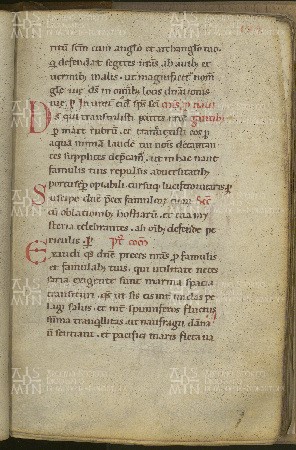 ritū scm̄ cum anglo et archanglo tuo,
q̄ defendat segetes nr̄as ab auib; et
uermib; malis. ut magnificet᷑ nom̄
glę tuę d̄s in omib; locis dn̄ationis
tuę. p̱ In unit̄ ei᷒ sp̄s sc̄i
D s qui transtulisti patres nr̄os
p̱ mare rubrū. et transuexisti eos p̱
aqua nimia laudē tui nōis decantan
tes supplices dep̄camᷣ. ut in hac naui
famulis tuis repulsis aduersitatib;
portu semp̱ optabili. cursuq; luciferos
S uscipe dn̄e p̄ces famulorū tuorū
cū oblationib; hostiarū. et tua my
steria celebrantes. ab oīb; defende pe
riculis. P̱ P᷒t coīō
E xaudi qs̄ dn̄e preces nr̄as p̱ famulis
et famulab; tuis. qui utilitate neces
saria exigente sunt marina spacia
transituri. ut sis eis int᷑ undas pe
lagi salus. et int᷑ spumiferos fluctus
summa tranq̇llitas. ut naufragii dāna
ñ sentiant. et pacifici maris freta na